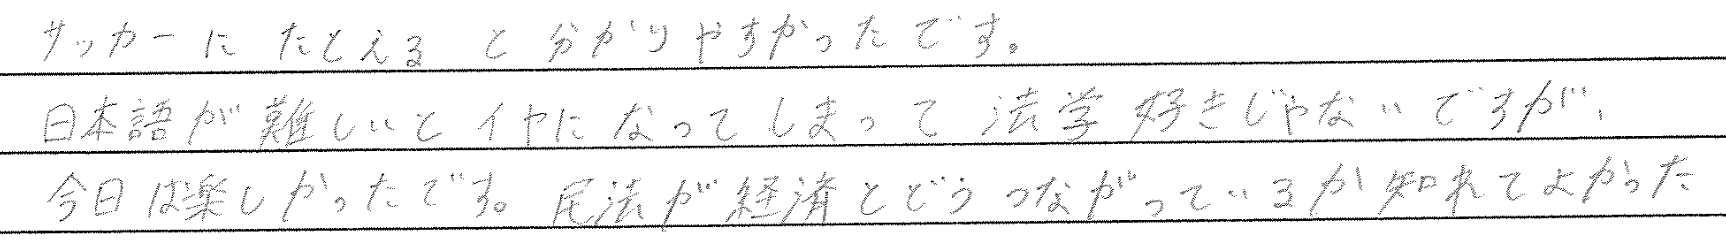 サッカーにたとえると分かりやすかったです。
日本語が難しいとイヤになってしまって法学好きじゃないですが、
今日は楽しかったです。民法が経済とどうつながっているか知れてよかった